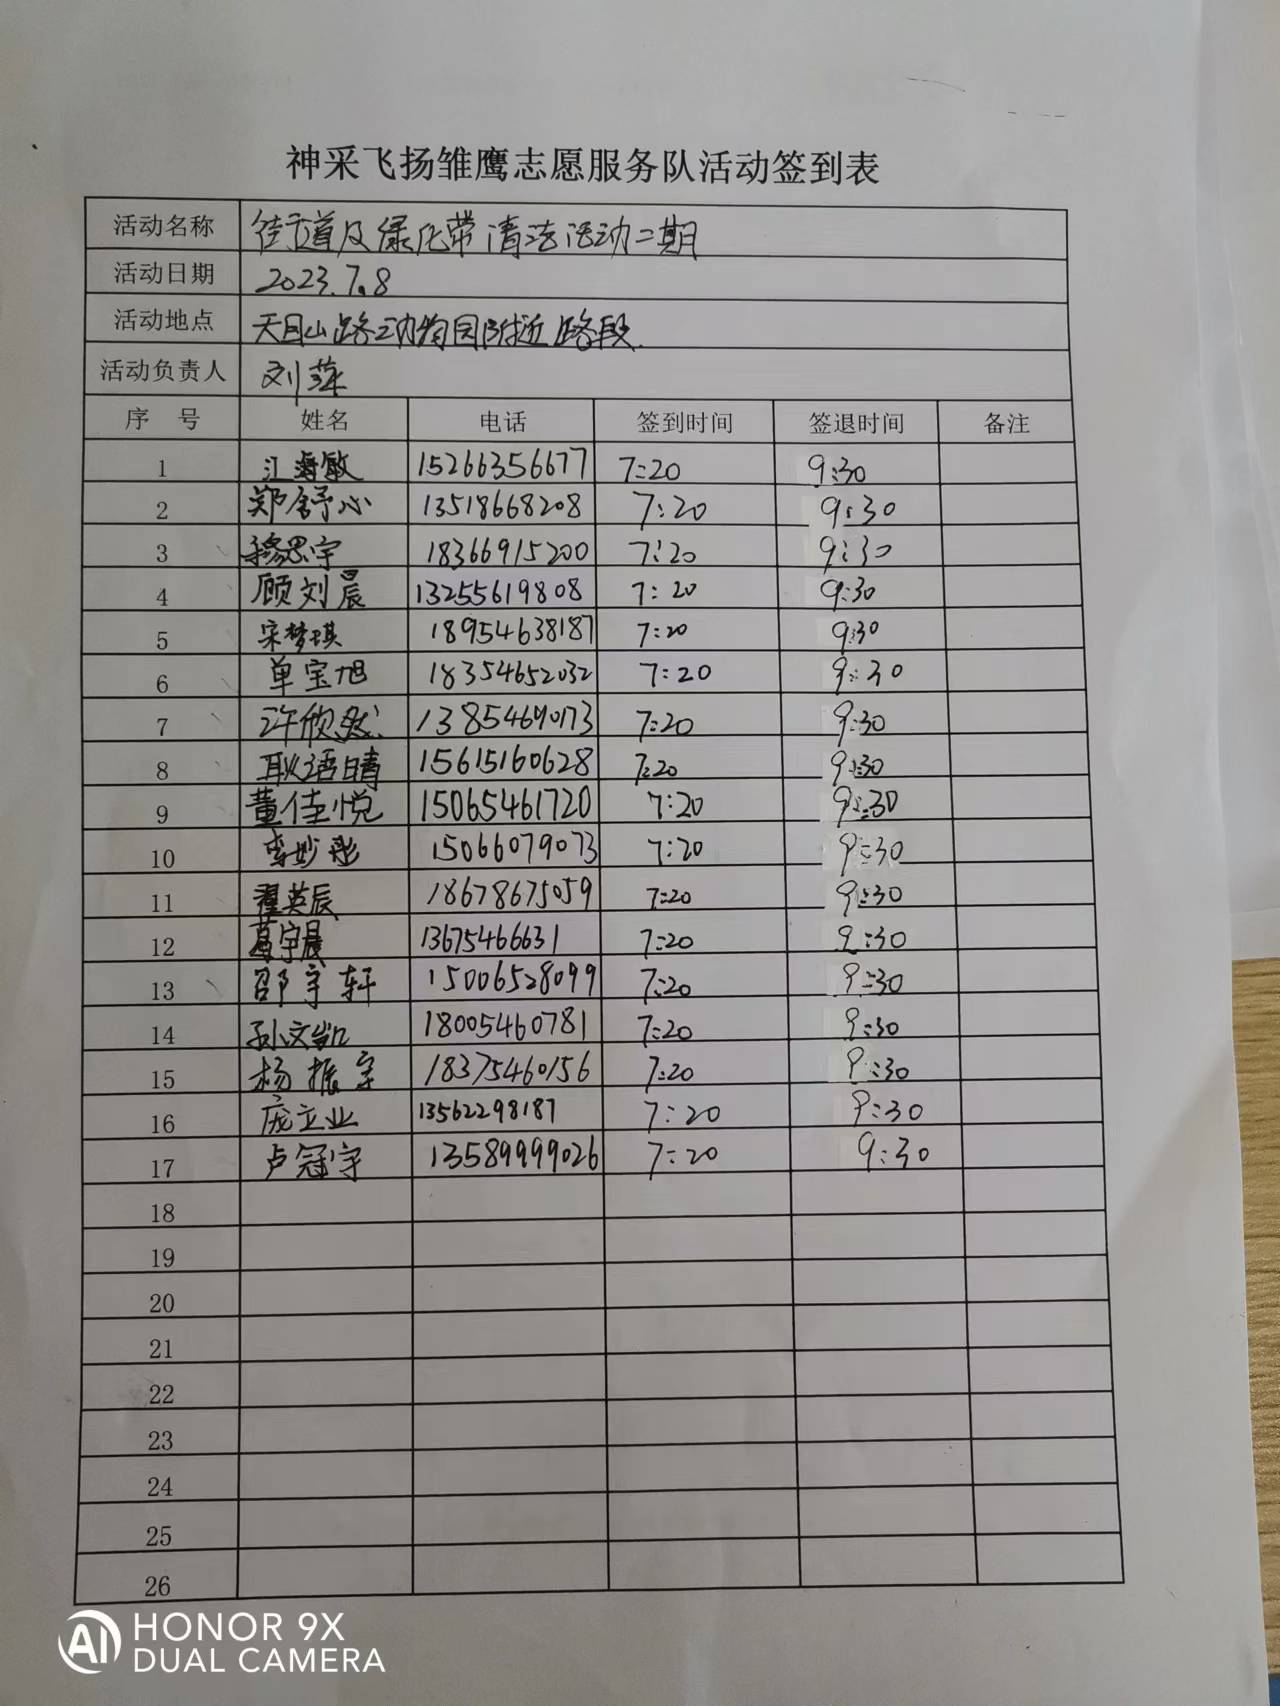 神采飞扬雏鹰志愿服务队活动签到表
活动名称 街道及绿化带清洁活动二期
活动日期 2023.7.8
活动地点 天目山路动物园附近路段
活动负责人 刘萍
序 号 姓名 电话 签到时间 签退时间 备注
1 江海敏 15266356677 7:20 9:30
2 郑舒心 13518668208 7:20 9:30
3 穆思宇 18366915200 7:20 9:30
4 顾刘晨 13255619808 7:20 9:30
5 宋梦琪 18954638187 7:20 9:30
6 单宝旭 18354652032 7:20 9:30
7 许欣然 13854690173 7:20 9:30
8 耿语晴 15615160628 7:20 9:30
9 董佳悦 15065461720 7:20 9:30
10 李妙彤 15066079073 7:20 9:30
11 翟英辰 18678675059 7:20 9:30
12 葛宇晨 13675466631 7:20 9:30
13 邵宇轩 15006528099 7:20 9:30
14 孙文凯 18005460781 7:20 9:30
15 杨振宇 18375460156 7:20 9:30
16 庞立业 13562298187 7:20 9:30
17 卢冠宇 13589999026 7:20 9:30
18
19
20
21
22
23
24
25
26
AI HONOR 9X
DUAL CAMERA